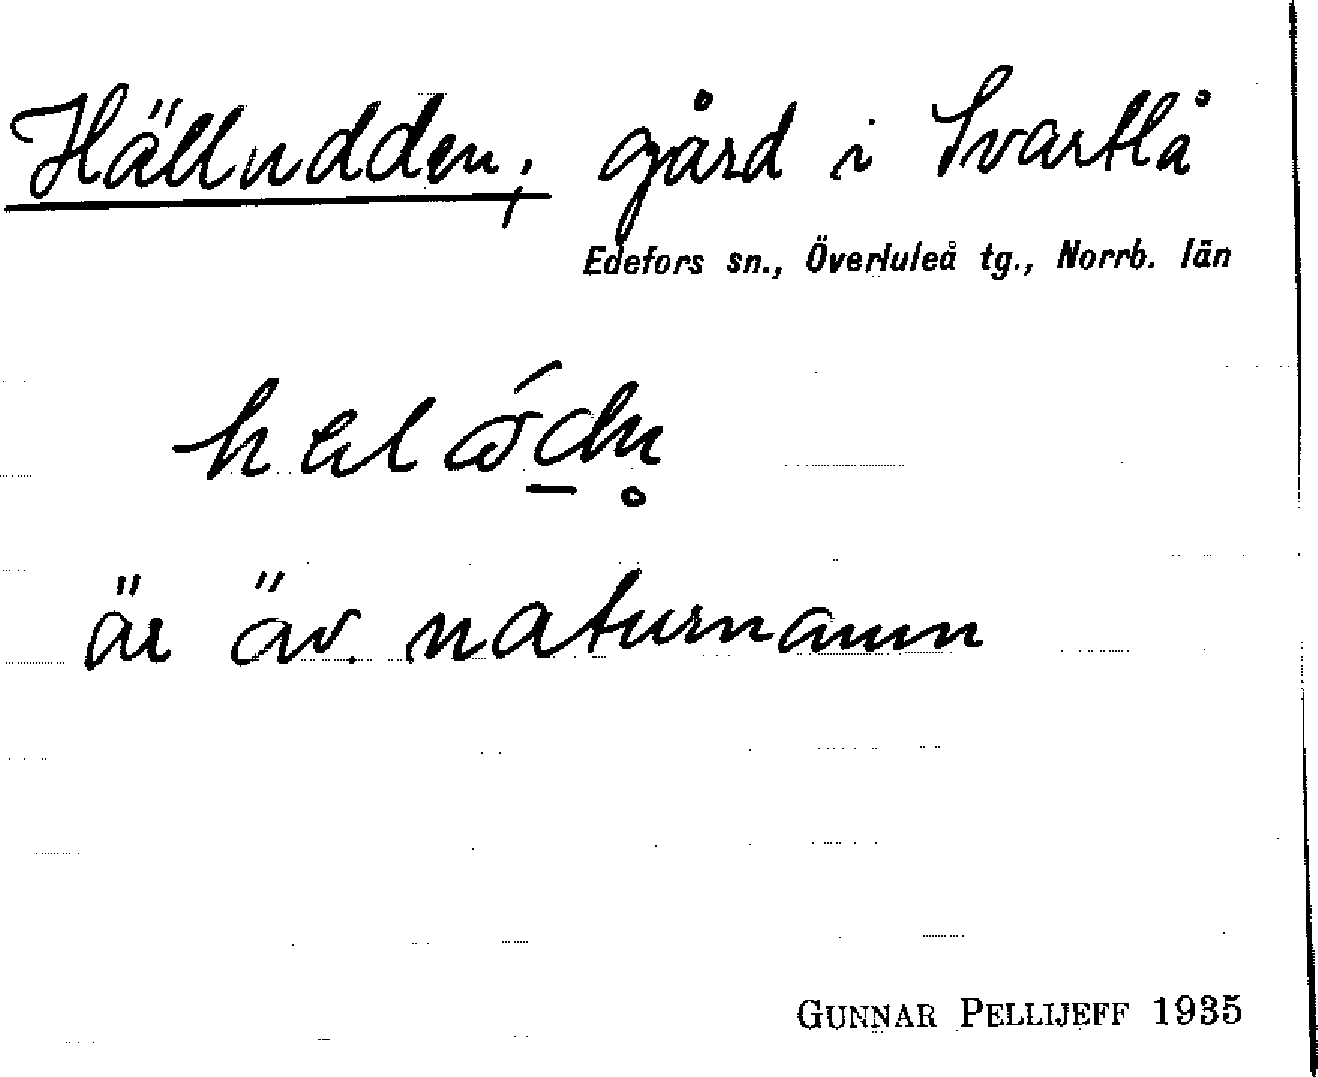 Hälludden, gård i Svartlå
Edefors sn., Överluleå tg., Norrb. län
är äv. naturnamn
GUNNAR PELLIJEFF 1935